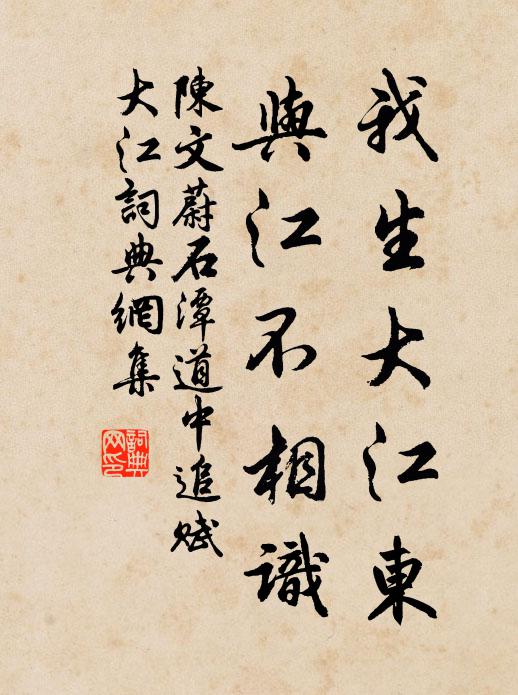 我生大江東
與江不相識
陳文蔚石潭道中追賦
大江詞典網集
詞典
网印